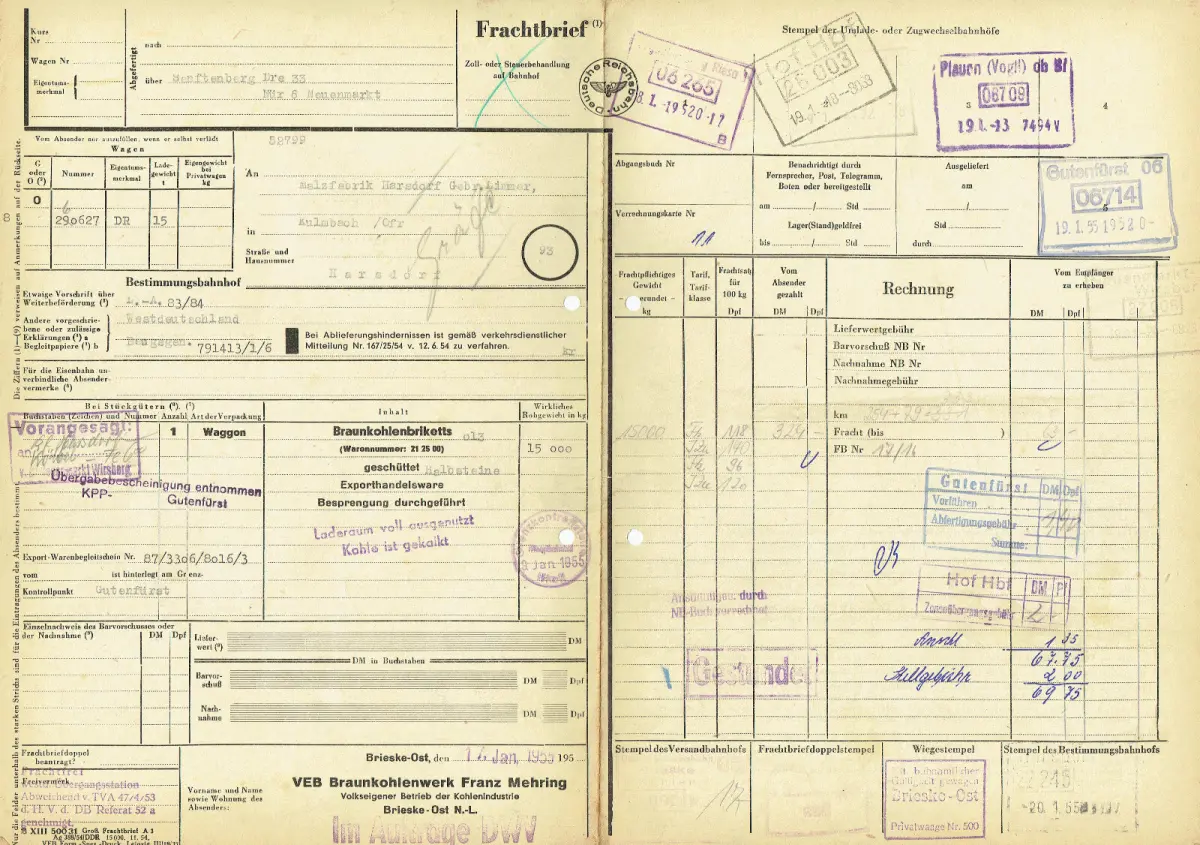 Kurs
Nr
Wagen Nr
Eigentums-
merkmal
Abgefertigt
nach
über Senftenberg Dre 33
Mür 6 Neuenmarkt
Frachtbrief (1)
Zoll- oder Steuerbehandlung
auf Bahnhof
Deutsche Reichsbahn
06 265
8
Stempel der Umlade- oder Zugwechselbahnhöfe
Hof Hbf
26 003
19.1.-48--8003
Plauen (Vogtl) ob Bf
3
06709
4
19.1.-13 7494V
Vom Absender nur auszufüllen, wenn er selbst verlädt
Wagen
G oder O (²)
Nummer
Eigentums-
merkmal
Lade-
gewicht
t
Eigengewicht
bei
Privatwagen
kg
O
6
290627 DR 15
58799
An Malzfabrik Harsdorf Gebr.Limmer,
in Kulmbach /Ofr
Straße und
Hausnummer
Harsdorf
93
Bestimmungsbahnhof
Abgangsbuch Nr
Verrechnungskarte Nr
11
Benachrichtigt durch
Fernsprecher, Post, Telegramm,
Boten oder bereitgestellt
am / Std
Lager(Stand)geldfrei
bis / Std
Ausgeliefert
am
/
Std
durch
Gutenfürst 06
06714
19.1.55 1952 0-
Etwaige Vorschrift über
Weiterbeförderung (³)
83/84
Andere vorgeschrie-
bene oder zulässige
Erklärungen (⁴) a
Begleitpapiere (⁵) b
Westdeutschland
791413/1/6
Bei Ablieferungshindernissen ist gemäß verkehrsdienstlicher
Mitteilung Nr. 167/25/54 v. 12. 6. 54 zu verfahren.
kr
Für die Eisenbahn un-
verbindliche Absender-
vermerke (⁶)
Bei Stückgütern (⁸). (⁷)
Buchstaben (Zeichen) und Nummer
Anzahl
Art der Verpackung
Inhalt
Wirkliches
Rohgewicht in kg
Vorangesagt:
an
1 Waggon
Braunkohlenbriketts
(Warennummer: 21 25 00)
geschüttet Halbsteine
Exporthandelsware
Besprengung durchgeführt
15 000
Übergabebescheinigung entnommen
KPP- Gutenfürst
Laderaum voll ausgenutzt
Kohle ist gekalkt
9. Jan 1955
Export-Warenbegleitschein Nr. 87/3306/8016/3
vom ist hinterlegt am Grenz-
Kontrollpunkt Gutenfürst
Einzelnachweis des Barvorschusses oder
der Nachnahme (⁹) DM Dpf
Liefer-
wert (⁹)
DM
DM in Buchstaben
Barvor-
schuß
DM Dpf
Nach-
nahme
DM Dpf
Frachtbriefdoppel
beantragt?
Freivermerk
Frachtfrei
Übergangsstation
Abweichend v. TVA 47/4/53
d. H. V. d. DB Referat 52 a
genehmigt.
B XIII 50031 Groß Frachtbrief A 1
Vorname und Name
sowie Wohnung des
Absenders:
Brieske-Ost, den 17. Jan. 1955 195
VEB Braunkohlenwerk Franz Mehring
Volkseigener Betrieb der Kohlenindustrie
Brieske-Ost N.-L.
Im Auftrage DWV
Frachtpflichtiges
Gewicht
- gerundet -
kg
Tarif,
Tarif-
klasse
Frachtsatz
für
100 kg
Dpf
Vom
Absender
gezahlt
DM Dpf
Rechnung
Vom Empfänger
zu erheben
DM Dpf
Lieferwertgebühr
Barvorschuß NB Nr
Nachnahme NB Nr
Nachnahmegebühr
km
Fracht (bis )
FB Nr 17/16
15000
118
329 -
140
96
120
63 -
Gutenfürst DM Dpf
Vorführen
Abfertigungsgebühr
Summe:
Hof Hbf DM Pf
2-
durch
Gestundet
1 35
67.75
Stellgebühr 2 00
69 75
Stempel des Versandbahnhofs
Frachtbriefdoppelstempel
Wiegestempel
Stempel des Bestimmungsbahnhofs
Brieske-Ost
Privatwaage Nr. 500
-20. 1. 55